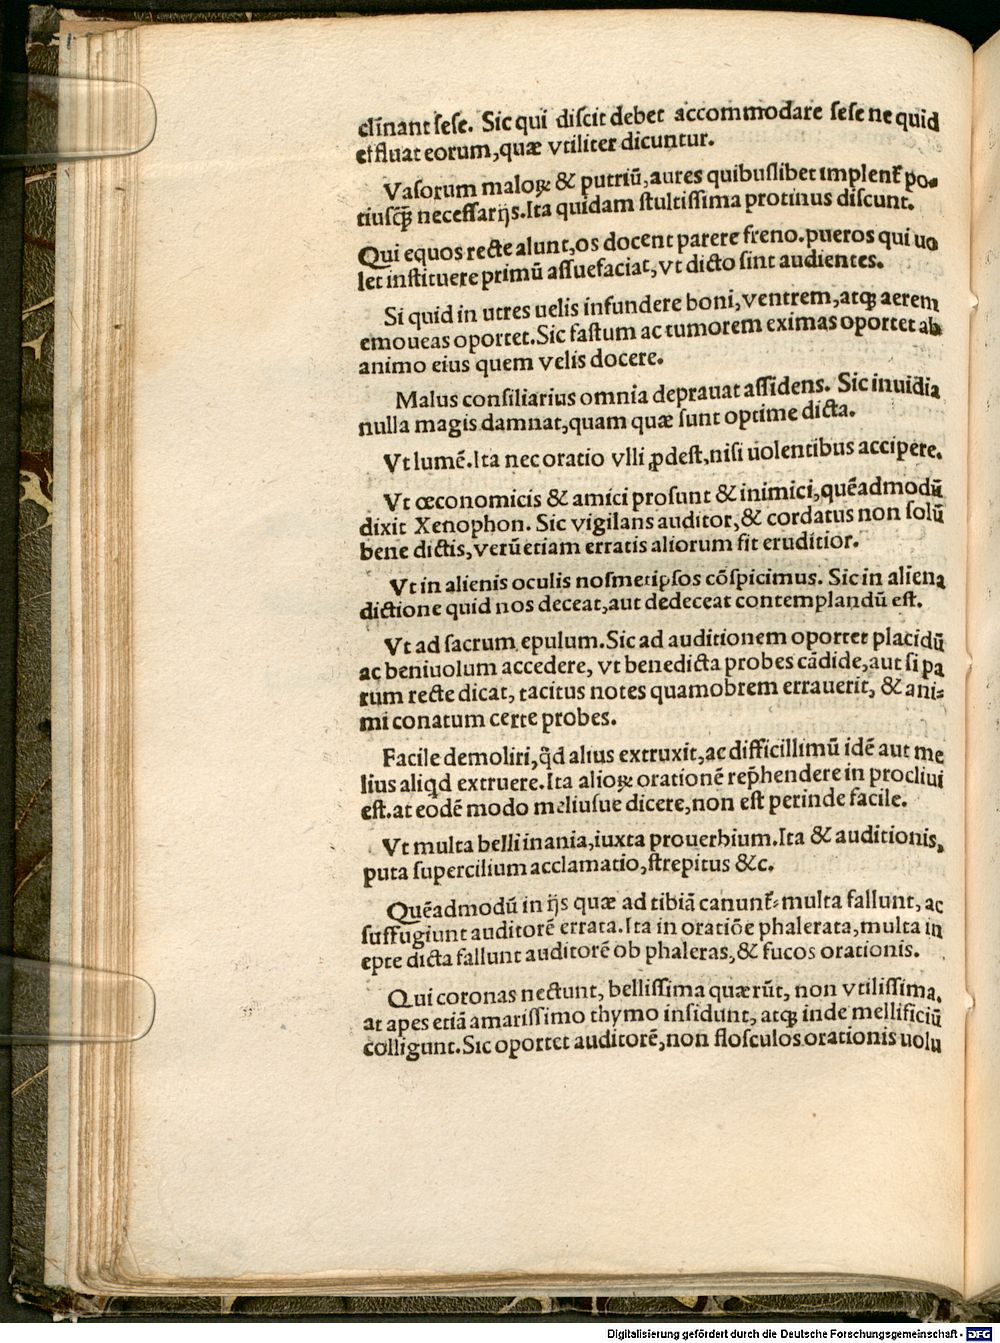 clinant sese. Sic qui discit debet accommodare sese ne quid
effluat eorum, quæ vtiliter dicuntur.
Vasorum maloꝝ & putriū, aures quibuslibet implentᷣ po-
tiusꝙ̃ necessarijs. Ita quidam stultissima protinus discunt.
Qui equos recte alunt, os docent parere freno. pueros qui uo
let instituere primū assuefaciat, vt dicto sint audientes.
Si quid in utres uelis infundere boni, ventrem, atqꝫ aerem
emoueas oportet. Sic fastum ac tumorem eximas oportet ab
animo eius quem velis docere.
Malus consiliarius omnia deprauat assidens. Sic inuidia
nulla magis damnat, quam quæ sunt optime dicta.
Vt lumē. Ita nec oratio vlli ꝓdest, nisi uolentibus accipere.
Vt œconomicis & amici prosunt & inimici, quēadmodū
dixit Xenophon. Sic vigilans auditor, & cordatus non solū
bene dictis, verū etiam erratis aliorum fit eruditior.
Vt in alienis oculis nosmetipsos cōspicimus. Sic in aliena
dictione quid nos deceat, aut dedeceat contemplandū est.
Vt ad sacrum epulum. Sic ad auditionem oportet placidū
ac beniuolum accedere, vt benedicta probes cādide, aut si pa
rum recte dicat, tacitus notes quamobrem errauerit, & ani-
mi conatum certe probes.
Facile demoliri, qd̄ alius extruxit, ac difficillimū idē aut me
lius aliqd extruere. Ita alioꝝ orationē rep̄hendere in procliui
est. at eodē modo meliusue dicere, non est perinde facile.
Vt multa belli inania, iuxta prouerbium. Ita & auditionis,
puta supercilium acclamatio, strepitus &c.
Quēadmodū in ijs quæ ad tibiā canuntᷣ multa fallunt, ac
suffugiunt auditorē errata. Ita in oratiōe phalerata, multa in
epte dicta fallunt auditorē ob phaleras, & fucos orationis.
Qui coronas nectunt, bellissima quærūt, non vtilissima.
at apes etiā amarissimo thymo insidunt, atqꝫ inde mellificiū
colligunt. Sic oportet auditorē, non flosculos orationis uolu
Digitalisierung gefördert durch die Deutsche Forschungsgemeinschaft - DFG